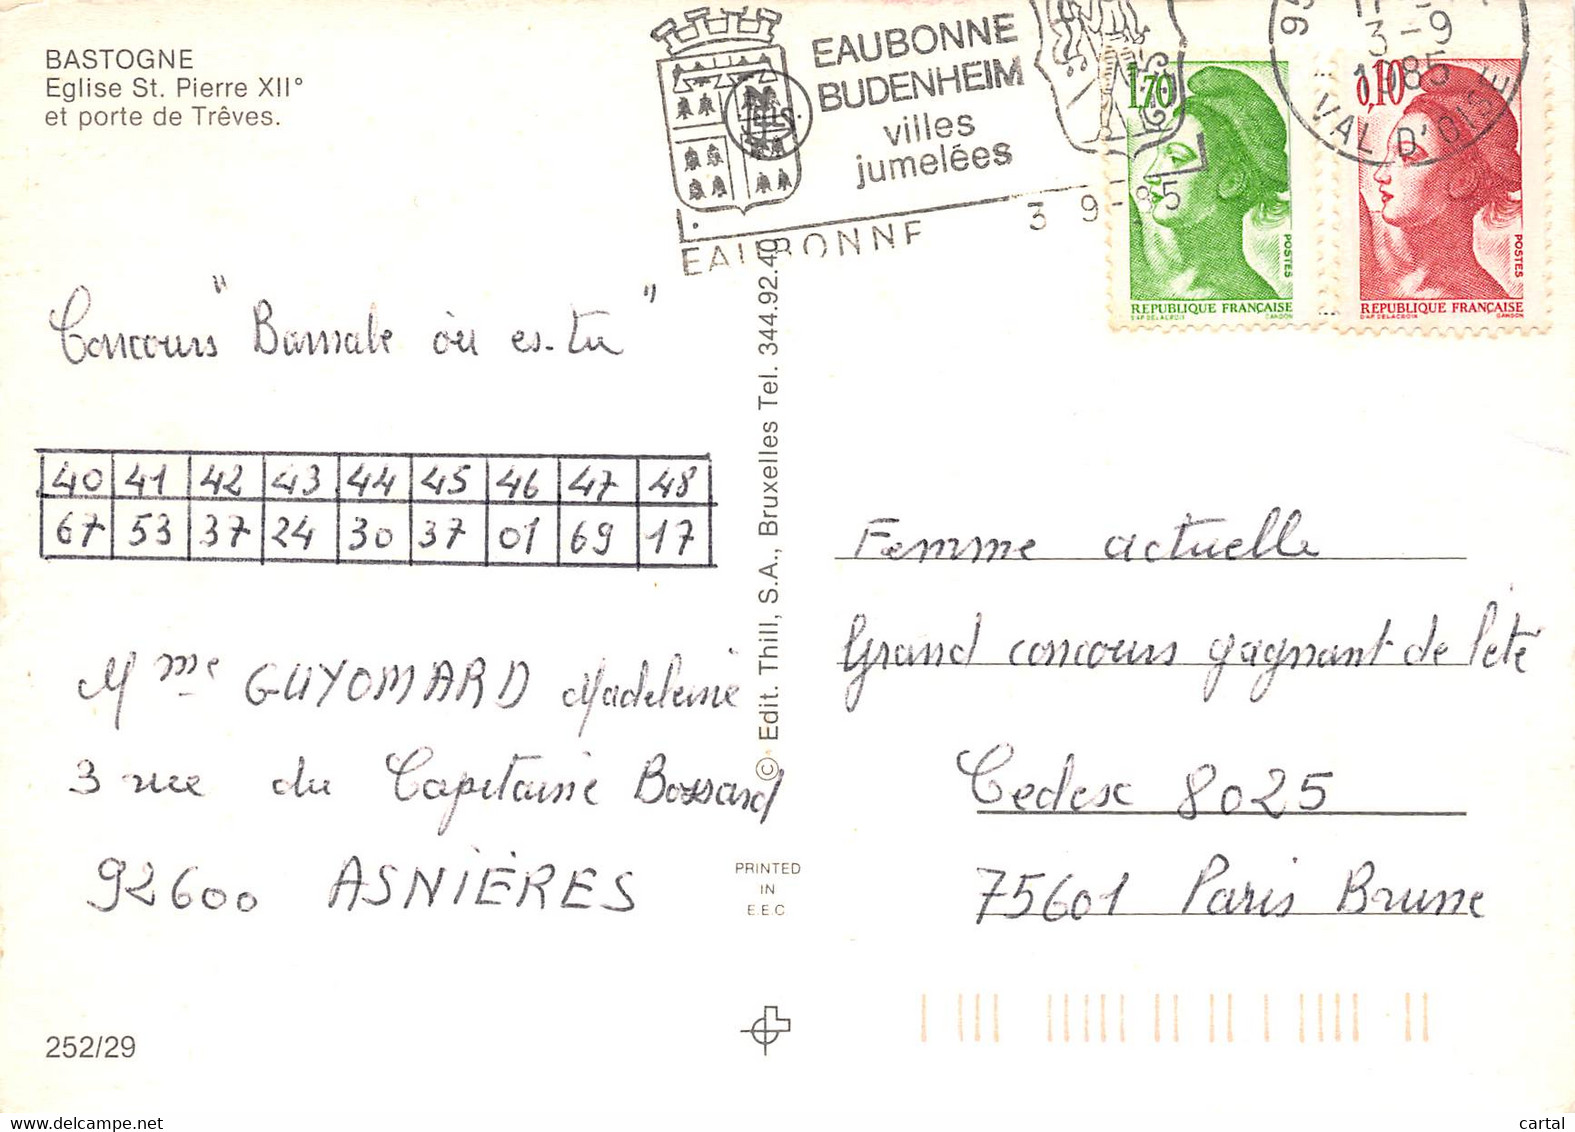 BASTOGNE
Eglise St. Pierre XII°
et porte de Trêves.
EAUBONNE
BUDENHEIM
villes
jumelées
EAUBONNE
3 9-85
3-9
1985
VAL D'OISE
1,70
POSTES
REPUBLIQUE FRANÇAISE
D'AP DELACROIX GANDON
0,10
POSTES
REPUBLIQUE FRANÇAISE
D'AP DELACROIX GANDON
Concours "Barnabé où es-tu"
40 41 42 43 44 45 46 47 48
67 53 37 24 30 37 01 69 17
Mme GUYOMARD Madeleine
3 rue du Capitaine Bossard
92600 ASNIÈRES
© Edit. Thill, S.A., Bruxelles Tel. 344.92.40
PRINTED
IN
E.E.C
Femme actuelle
Grand concours gagnant de l'été
Cedex 8025
75601 Paris Brune
252/29
cartal